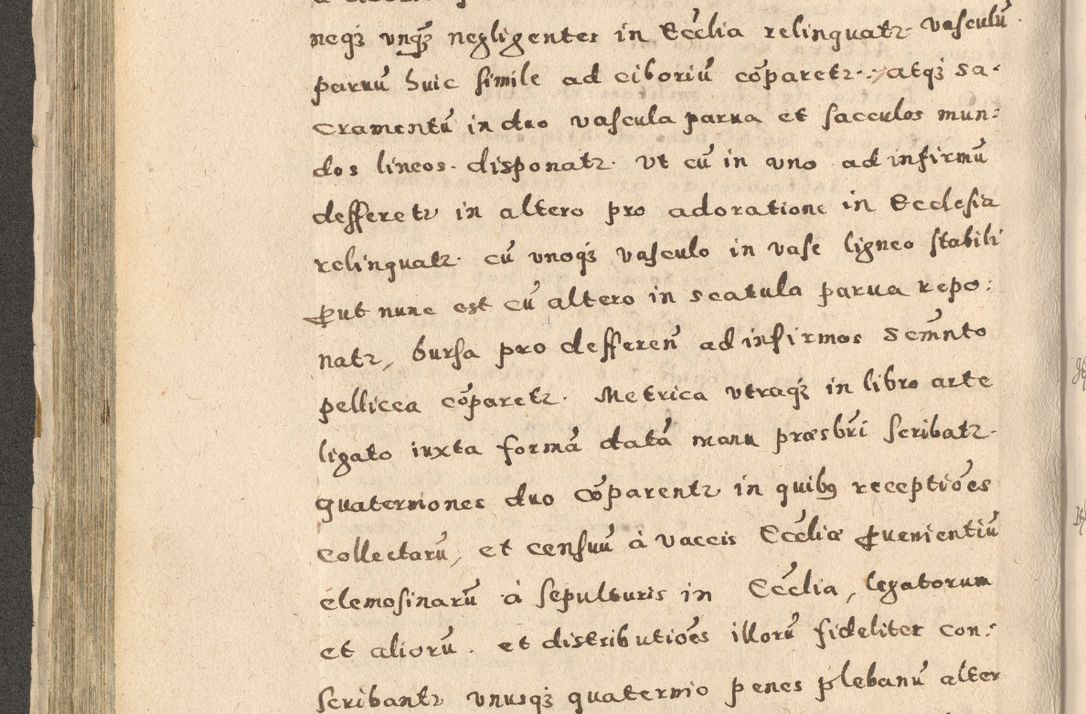 neqз unqз negligenter in Eccĺia relinquatr vasculū
paruū huic simile ad ciboriū cōparetr. atqз Sa-
cramentū in duo vascula parua et sacculos mun:
dos lineos. disponatr. ut cū in uno ad infirmū
defferetr in altero pro adoratione in Ecclesia
relinquatr. cū unoqз vasculo in vase ligneo stabili
ꝓut nunc est cū altero in scatula parua repo:
natr, bursa pro defferen̄ ad infirmos Scm̄nto
pellicea cōparetr. Metrica utraqз in libro arte
ligato iuxta formā datā manu præsbrī scribatr.
quaterniones duo cōparentr in quibꝯ receptiōes
collectarū, et censuū à vaccis Eccĺiæ ꝓuenientiū
elemosinarū à sepulturis in Eccĺia, legatorum
et aliorū. et distributiōes illorū fideliter con:
scribantr unusqз quaternio penes plebanū alter